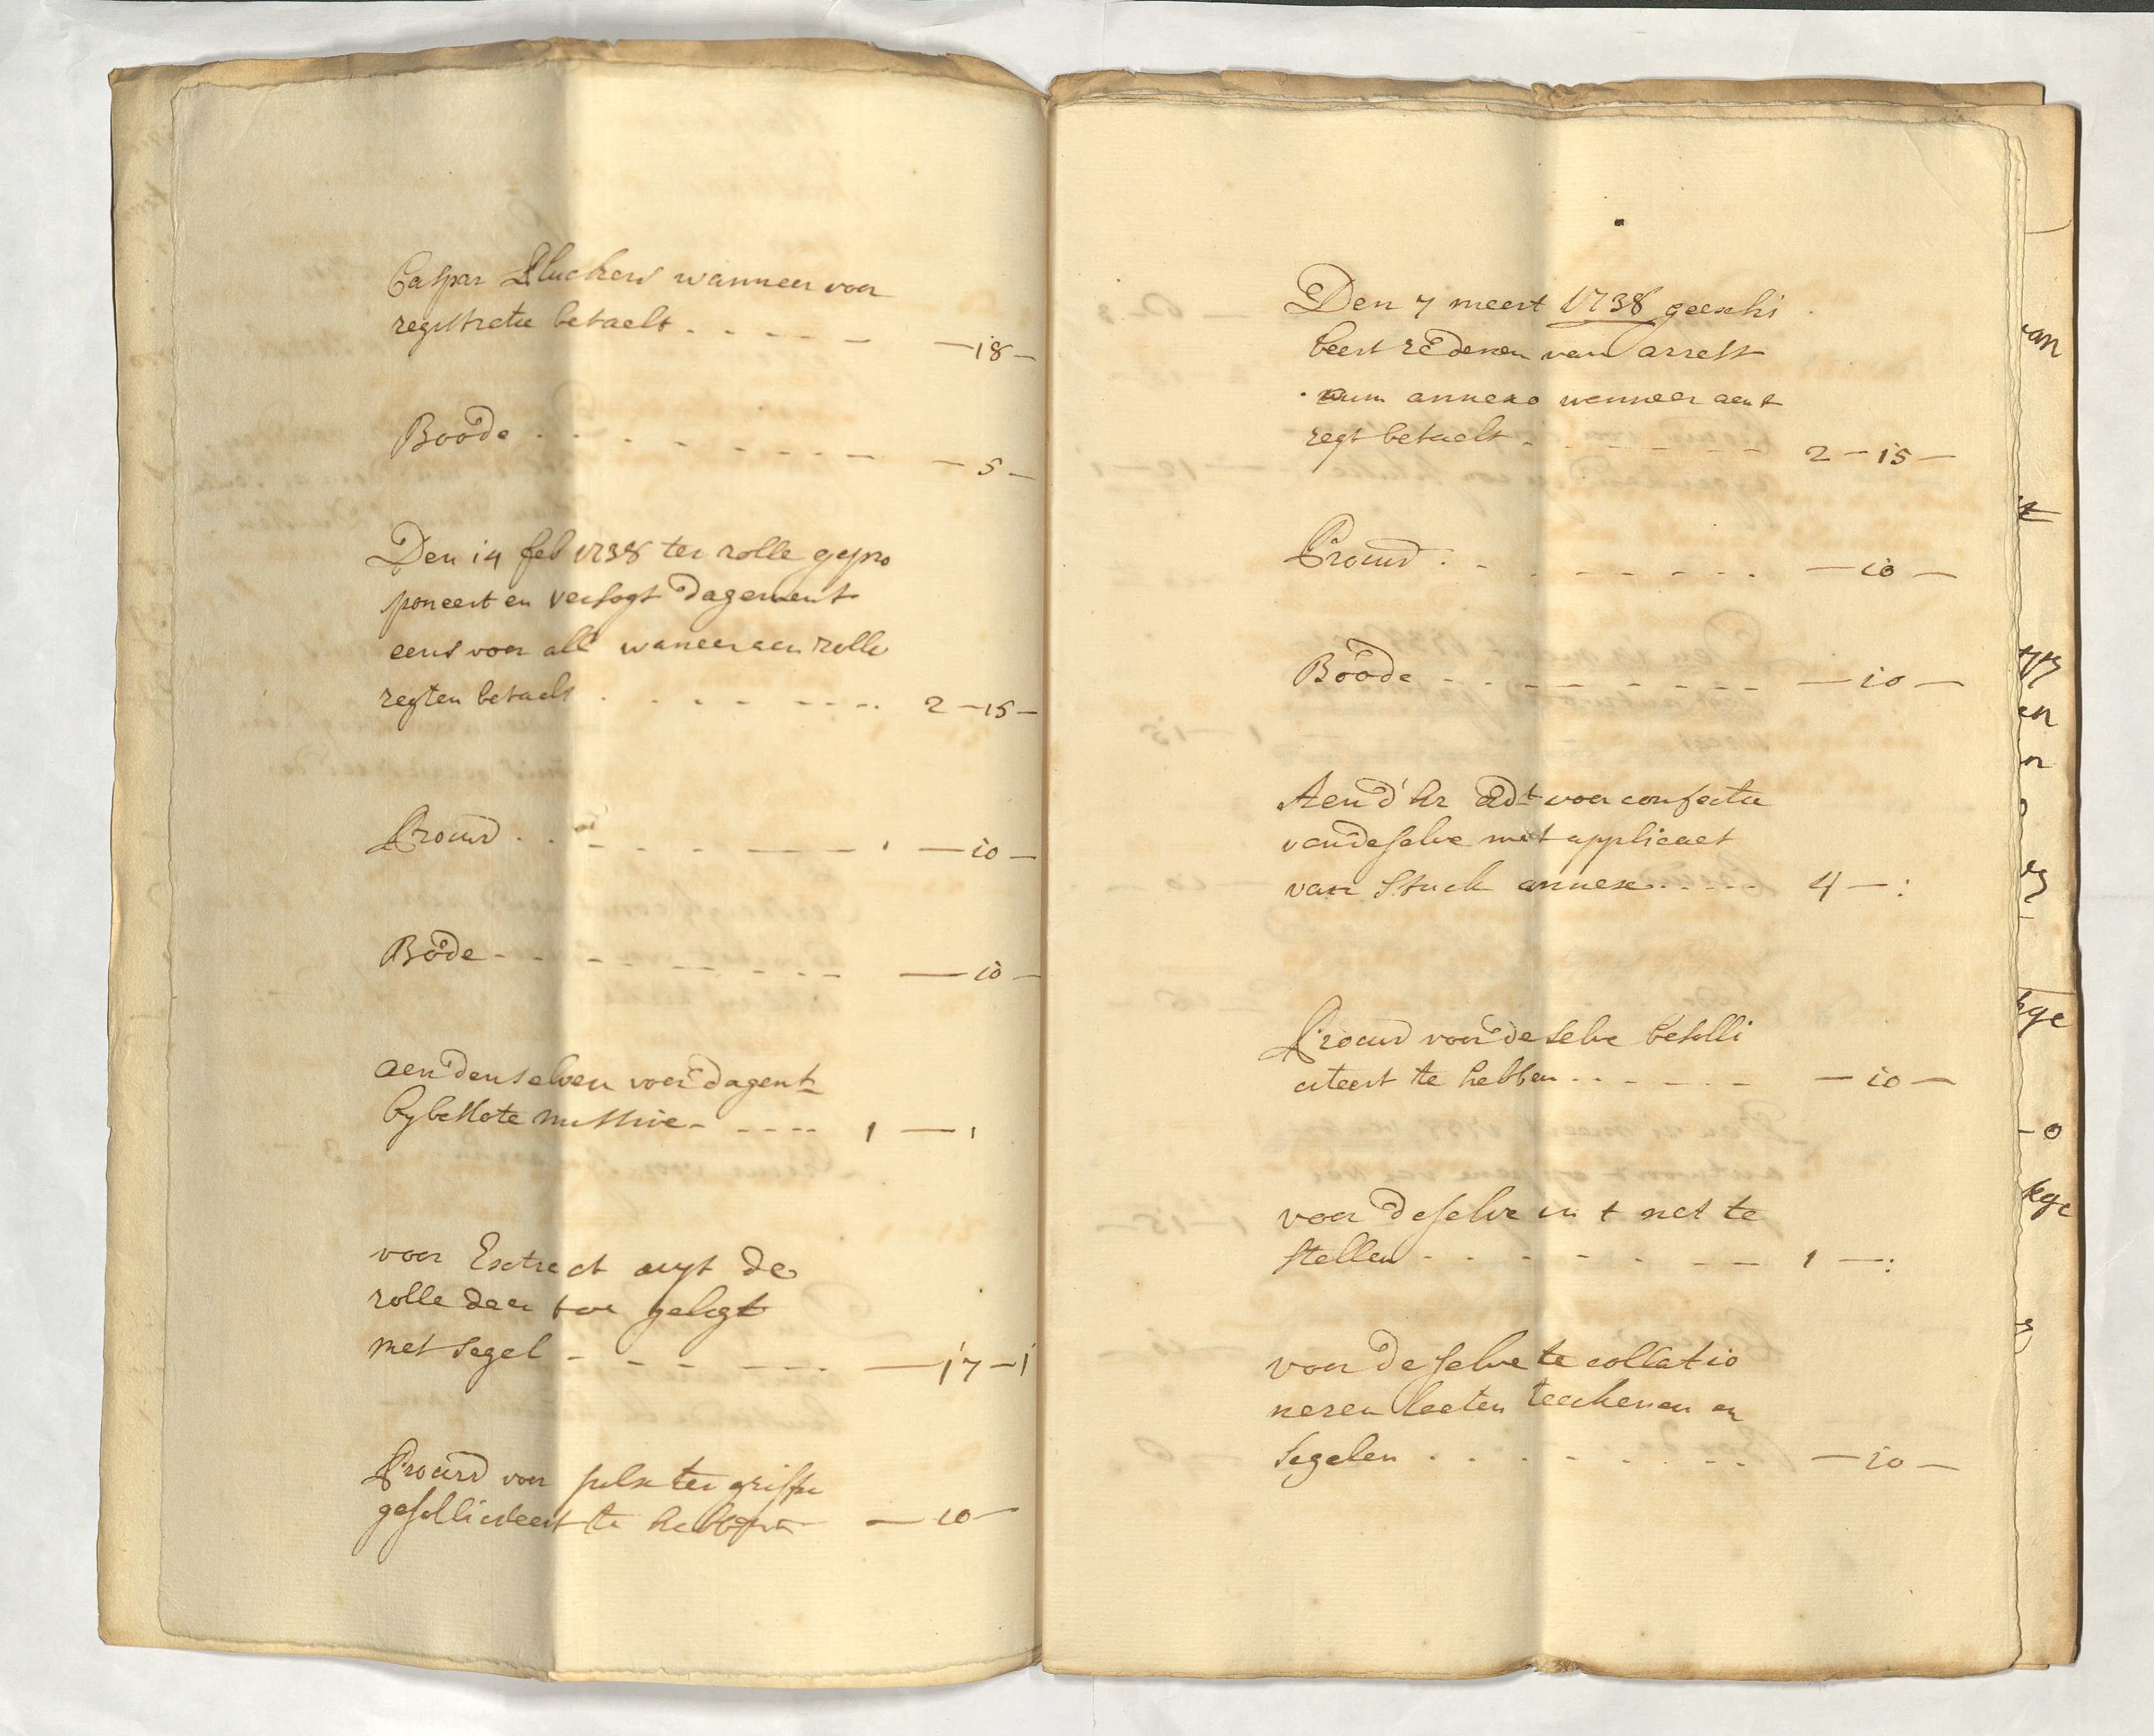 Caspar Pluckers wanneer voor
registratie betaelt . - - - - — 18 —
Boode . - - - - - - - — 5 —
Den 14 feb 1738 ter rolle gepro
poneert en versogt dagement
eens voor all waneer aen rolle
regten betaelt . - - - - - - 2 — 15 —
Procur . . - - - - — 10 —
Bode - - - - - - - - — 10 —
aen den selven voor dagent
by beslote missive - - - - - 1 —
voor Extract uyt de
rolle daer toe gelegt
met segel - - - - - — 17 — 1
Procur voor
gesolliciteert te hebben — 10 —
Den 7 meert 1738 geexhi
beert redenen van arrest
cum annexo wanneer aent
regt betaelt - - - - - - 2 — 15 —
Procur : - - - - - - - — 10 —
Boode - - - - - - - - — 10 —
Aen d'hr adt voor confectie
van deselve met applicaet
van stuck annex - - - - - 4 — :
Procur voor deselve besolli
citeert te hebben - - - - - — 10 —
voor deselve in t net te
stellen - - - - - - - 1 — :
voor deselve te collatio
neren laeten teeckenen en
segelen . . . - - - - — 10 —
van
en